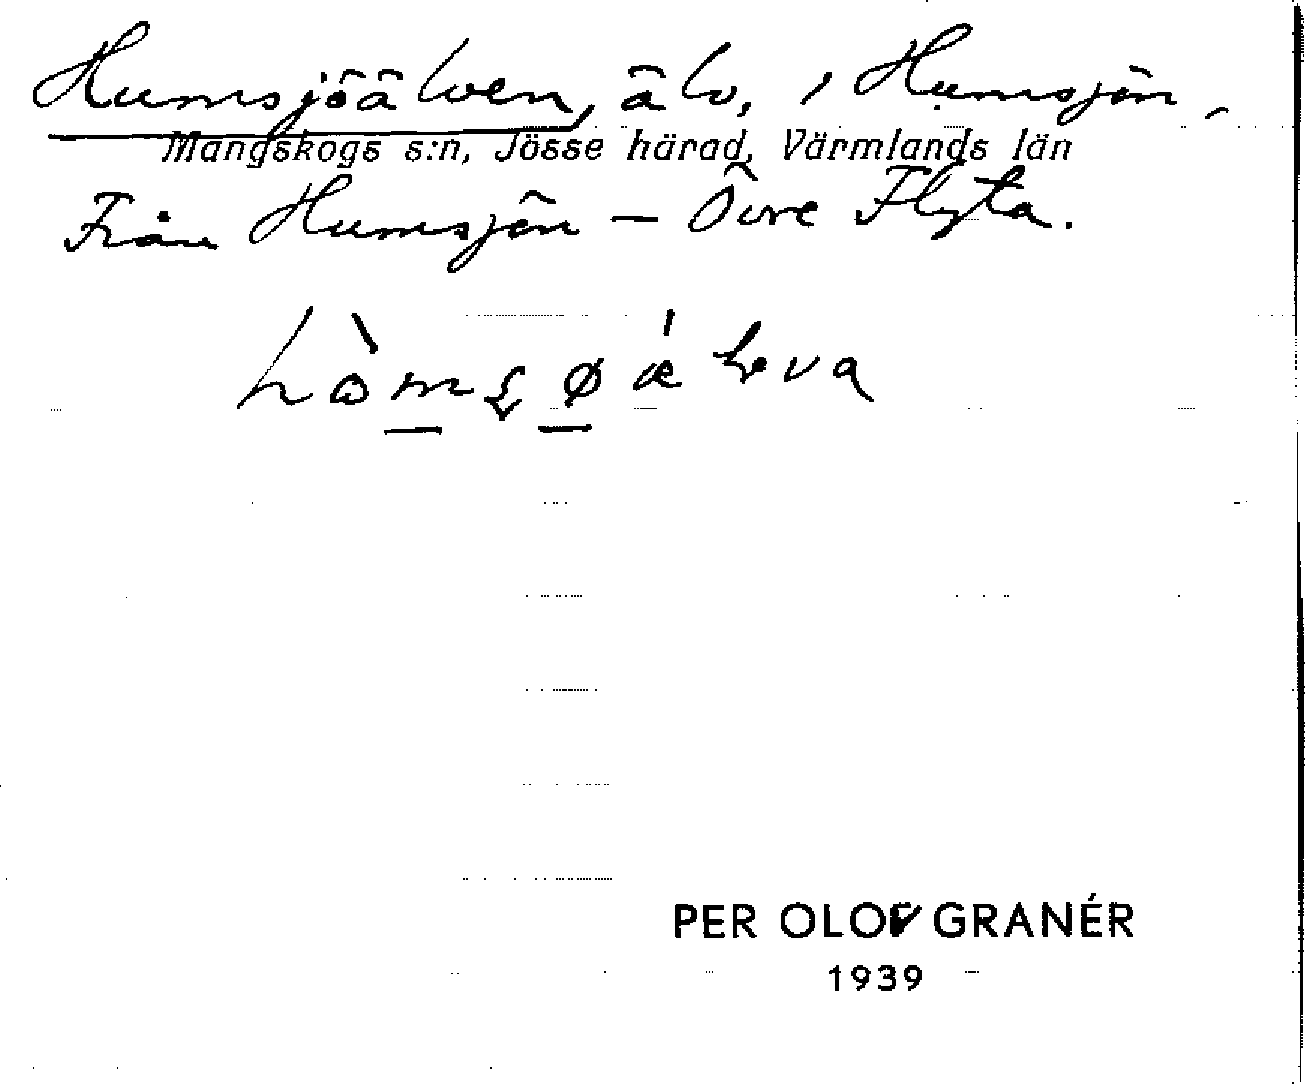 Humsjöälven, älv, i Humsjön,
Mangskogs s:n, Jösse härad, Värmlands län
Från Humsjön — Övre Flyta.
PER OLOV GRANÉR
1939